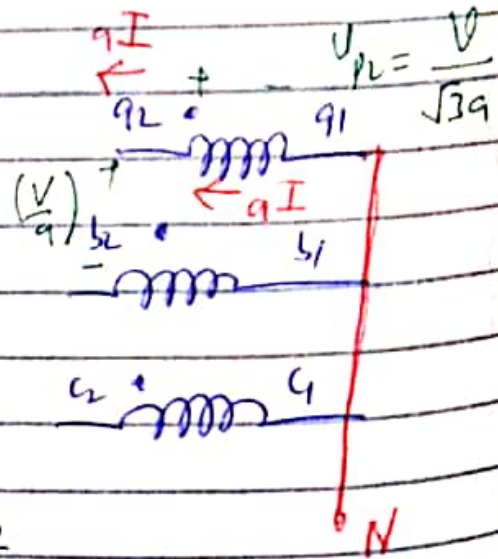 aI
+ - Vp2 = V/√3a
a2 a1
+ aI
(V/a)
b2 b1
-
c2 c1
N